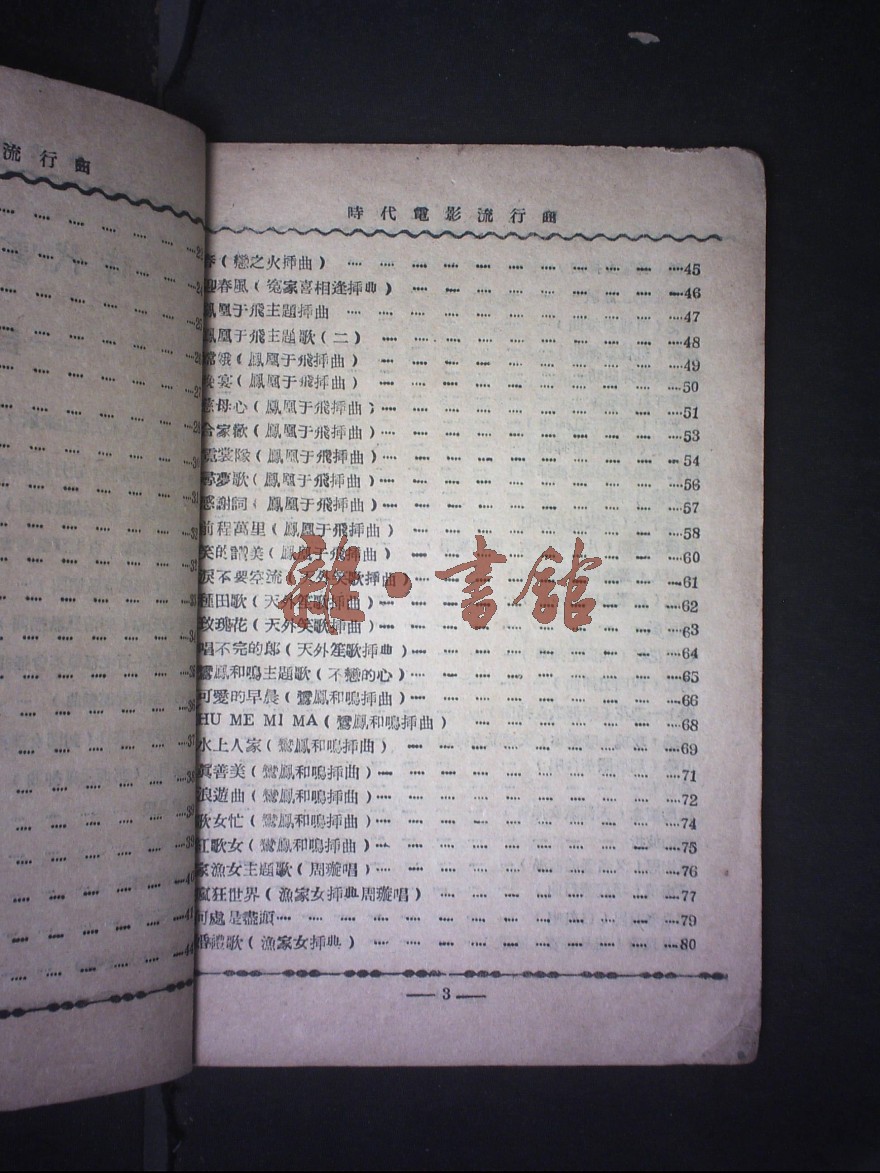 流行曲
時代電影流行曲
春(戀之火揷曲) 45
迎春風(寃家喜相逢揷典) 46
鳳凰于飛主題揷曲 47
鳳凰于飛主題歌(二) 48
嫦娥(鳳凰于飛揷曲) 49
晚宴(鳳凰于飛揷曲) 50
慈母心(鳳凰于飛揷曲) 51
合家歡(鳳凰于飛揷曲) 53
霓裳隊(鳳凰于飛揷曲) 54
尋夢歌(鳳凰于飛揷曲) 56
感謝詞(鳳凰于飛揷曲) 57
前程萬里(鳳凰于飛揷曲) 58
笑的讚美(鳳凰于飛揷曲) 60
淚不要空流(天外笑歌揷曲) 61
種田歌(天外笙歌揷曲) 62
玫瑰花(天外笑歌揷曲) 63
唱不完的郎(天外笙歌揷典) 64
鸞鳳和鳴主題歌(不戀的心) 65
可愛的早晨(鸞鳳和鳴揷曲) 66
HU ME MI MA(鸞鳳和鳴揷曲) 68
水上人家(鸞鳳和鳴揷曲) 69
眞善美(鸞鳳和鳴揷曲) 71
浪遊曲(鸞鳳和鳴揷曲) 72
歌女忙(鸞鳳和鳴揷曲) 74
紅歌女(鸞鳳和鳴揷曲) 75
家漁女主題歌(周璇唱) 76
瘋狂世界(漁家女揷典周璇唱) 77
何處是盡頭 79
婚禮歌(漁家女揷典) 80
— 3 —
雜·書館